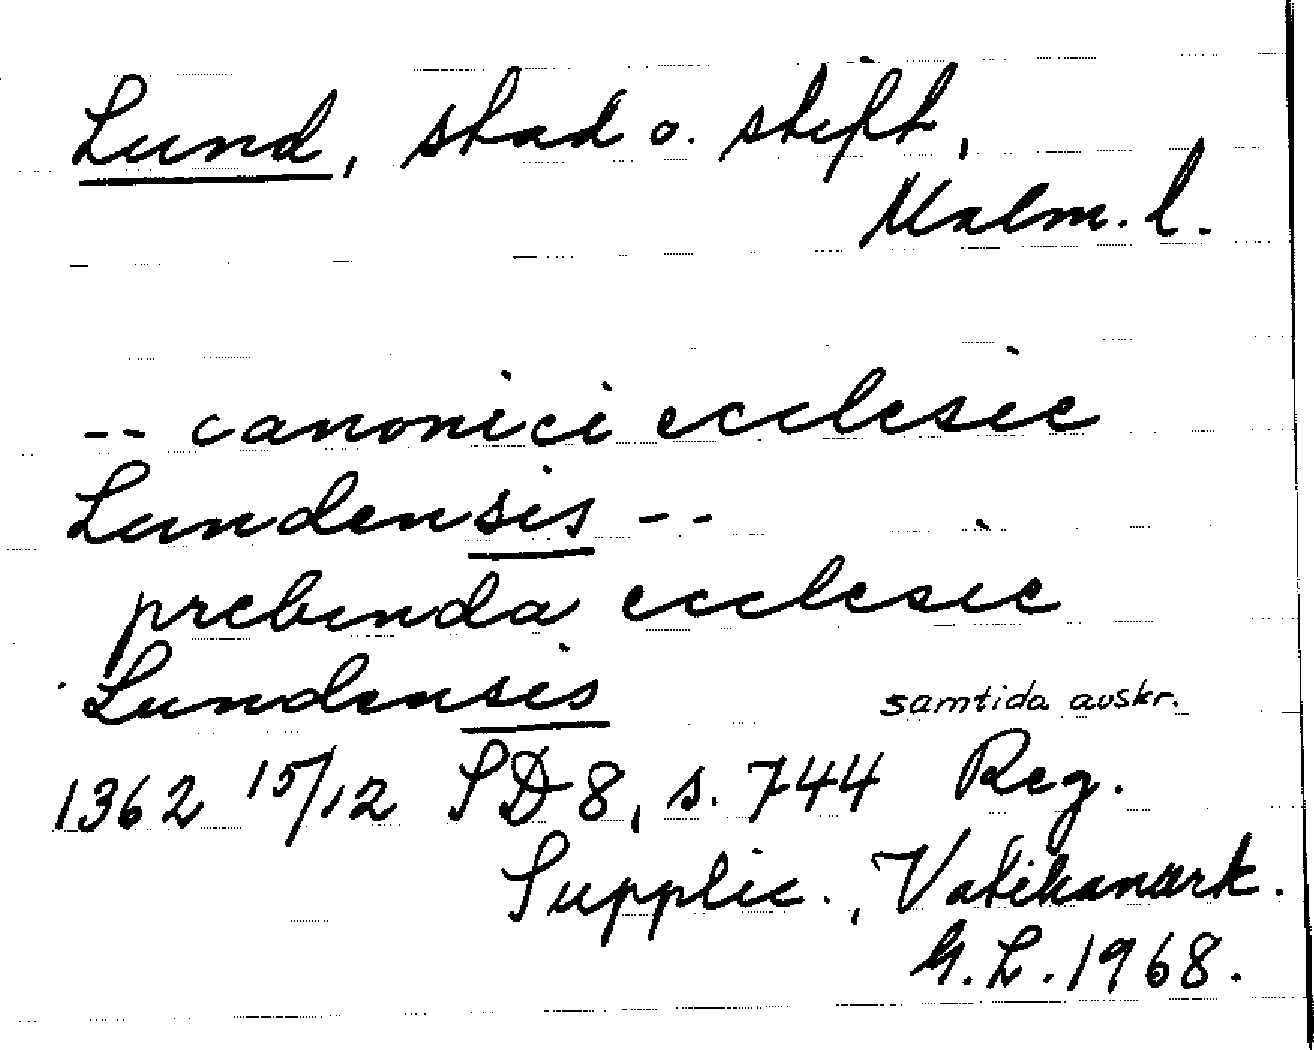 Lund, stad o. stift,
Malm. l.
-- canonici ecclesie
Lundensis --
prebenda ecclesie
Lundensis
samtida avskr.
1362 15/12 SD 8, s. 744 Reg.
Supplic., Vatikanark.
G.L. 1968.